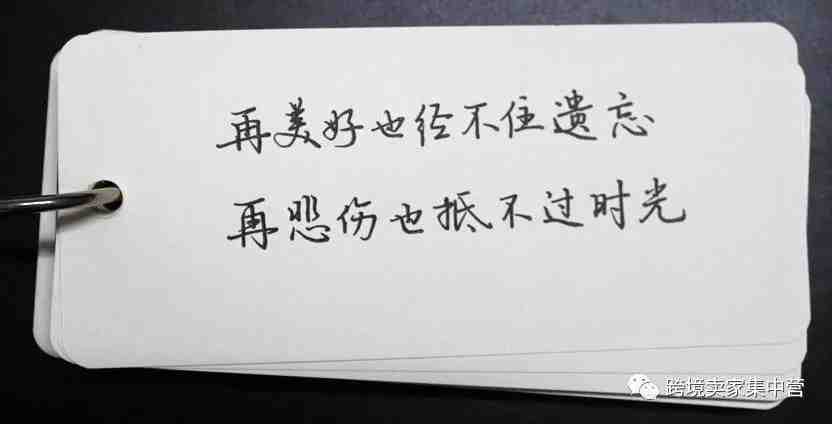 再美好也经不住遗忘
再悲伤也抵不过时光
跨境卖家集中营